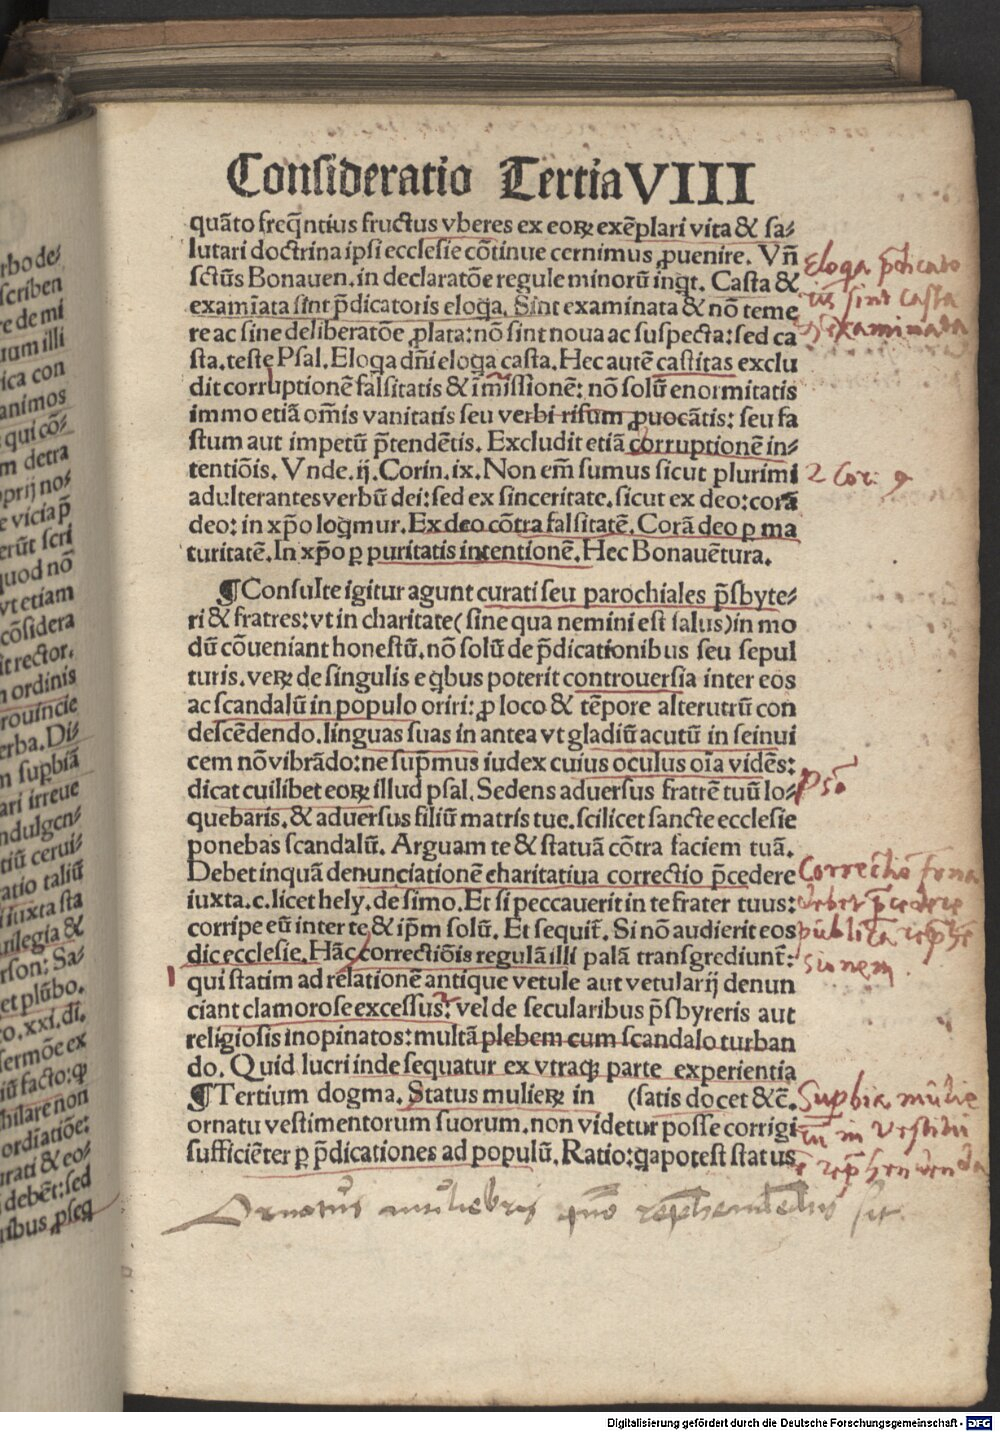 Consideratio Tertia VIII
quãto freq̃ntius fructus vberes ex eoꝝ exẽplari vita & sa-
lutari doctrina ipsi ecclesie cõtinue cernimus ꝓuenire. Vñ
sctũs Bonauen. in declaratõe regule minorũ inqt. Casta &
examĩata sint p̃dicatoris eloq̃a. Sint examinata & nõ teme
re ac sine deliberatõe ꝓlata: nõ sint noua ac suspecta: sed ca
sta. teste Psal. Eloq̃a dñi eloq̃a casta. Hec autẽ castitas exclu
dit corruptionẽ falsitatis & ĩmissionẽ: nõ solũ enormitatis
immo etiã om̃is vanitatis seu verbi risum ꝓuocãtis: seu fa
stum aut impetũ p̃tendẽtis. Excludit etiã corruptionẽ in-
tentiõis. Vnde .ij. Corin. ix. Non em̃ sumus sicut plurimi
adulterantes verbũ dei: sed ex sinceritate. sicut ex deo: corã
deo: in xp̃o loqmur. Ex deo cõtra falsitatẽ. Corã deo ꝑ ma
turitatẽ. In xp̃o ꝑ puritatis intentionẽ. Hec Bonauẽtura.
¶Consulte igitur agunt curati seu parochiales p̃sbyte-
ri & fratres: vt in charitate (sine qua nemini est salus) in mo
dũ cõueniant honestũ. nõ solũ de p̃dicationibus seu sepul
turis. veꝝ de singulis e qbus poterit controuersia inter eos
ac scandalũ in populo oriri: ꝓ loco & tẽpore alterutrũ con
descẽdendo. linguas suas in antea vt gladiũ acutũ in seinui
cem nõ vibrãdo: ne sup̃mus iudex cuius oculus oĩa vidẽs:
dicat cuilibet eoꝝ illud psal. Sedens aduersus fratrẽ tuũ lo-
quebaris. & aduersus filiũ matris tue. scilicet sancte ecclesie
ponebas scandalũ. Arguam te & statuã cõtra faciem tuã.
Debet inquã denunciationẽ charitatiua correctio p̃cedere
iuxta. c. licet hely. de simo. Et si peccauerit in te frater tuus:
corripe eũ inter te & ip̃m solũ. Et sequit̃. Si nõ audierit eos
dic ecclesie. Hãc correctiõis regulã illi palã transgrediunt̃:
qui statim ad relationẽ antique vetule aut vetularij denun
ciant clamorose excessus: vel de secularibus p̃sbyreris aut
religiosis inopinatos: multã plebem cum scandalo turban
do. Quid lucri inde sequatur ex vtraqꝫ parte experientia
¶Tertium dogma. Status mulieꝝ in (satis docet &c̃.
ornatu vestimentorum suorum. non videtur posse corrigi
sufficiẽter ꝑ p̃dicationes ad populũ. Ratio: qa potest status
Eloq̃a p̃dicato
ris sint casta
& examinata
2 Cor. 9
Pso
Correctio frna
debet p̃cedere
publicã rep̃hẽ
sionem.
Sup̃bia mulie
rũ in vestitu
ẽ rep̃hendenda
Ornatus muliebris quõ rep̃hendẽdus sit.
rbo de-
scriben
re de mi
uum illi
rica con
animos
qui cõ-
m detra
oprij no-
e vicia p̃
erũt scri
quod nõ
vt etiam
cõsidera
it rector.
n ordinis
rouincie
erba. Di-
m supbiã
ari irreue
ndulgen-
tiũ cerui-
ratio taliũ
i iuxta sta
uilegia &
rson: Sa-
et plũbo.
co. xxi. di.
sermõe ex
iũ facto: qꝫ
hilare non
ordĩatiõe:
urati & eo-
debẽt: sed
ribus ꝓseq
Digitalisierung gefördert durch die Deutsche Forschungsgemeinschaft - DFG